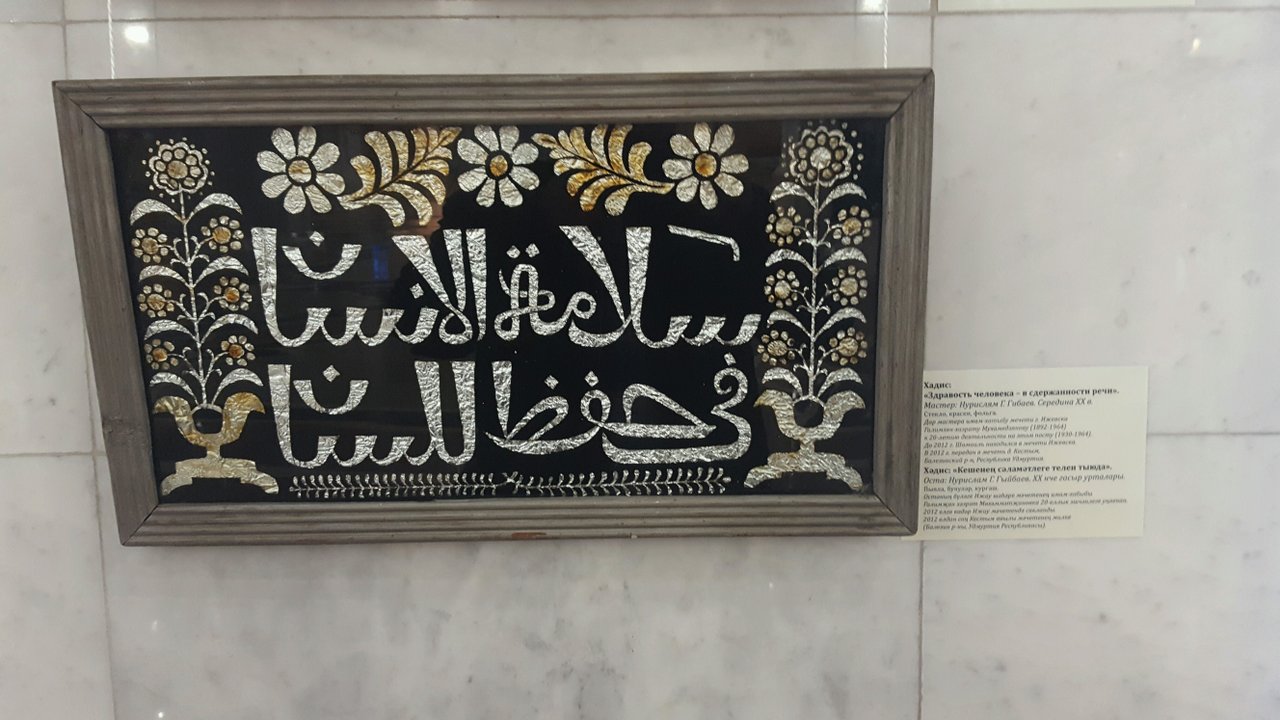 سلامة الانسان
فى حفظ للسان
Хадис:
«Здравость человека – в сдержанности речи».
Мастер: Нурислям Г. Гибаев. Середина XX в.
Стекло, краски, фольга.
Дар мастера имам-хатыбу мечети г. Ижевска
Галимзян-хазрату Мухамедшину (1892-1964)
к 20-летию деятельности на этом посту (1930-1964).
До 2012 г. Шамаиль находился в мечети Ижевска
В 2012 г. передан в мечеть д. Кестым,
Балезинский р-н, Республика Удмуртия.
Хәдис: «Кешенең сәламәтлеге телен тыюда».
Оста: Нурислам Г. Гыйбаев. XX нче гасыр урталары.
Пыяла, буяулар, кургаш.
Останың бүләге Ижау шәһәре мәчетенең имам-хатыйбы
20-еллык
2012 елга кадәр Ижау мәчетендә сакланды.
2012 елдан соң Кестым авылы мәчетенең милке
(Балезин р-ны, Удмуртия Республикасы).